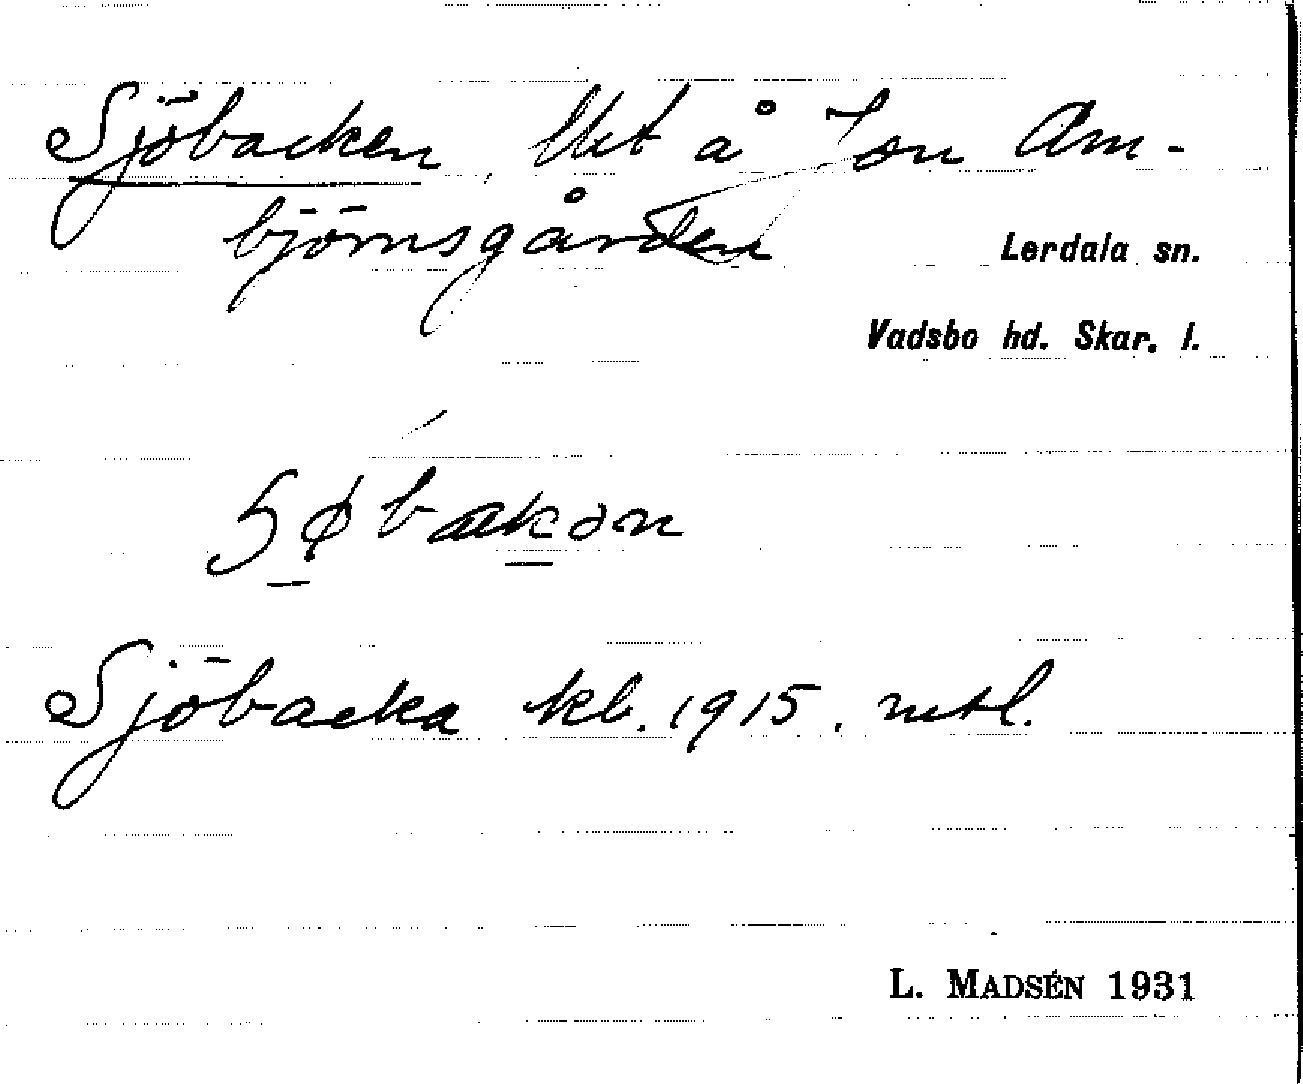 Sjöbacken, Uet å Jon Arn-
björnsgården
Lerdala sn.
Vadsbo hd. Skar. l.
Sjöbacka kl. 1915. mtl.
L. MADSÉN 1931